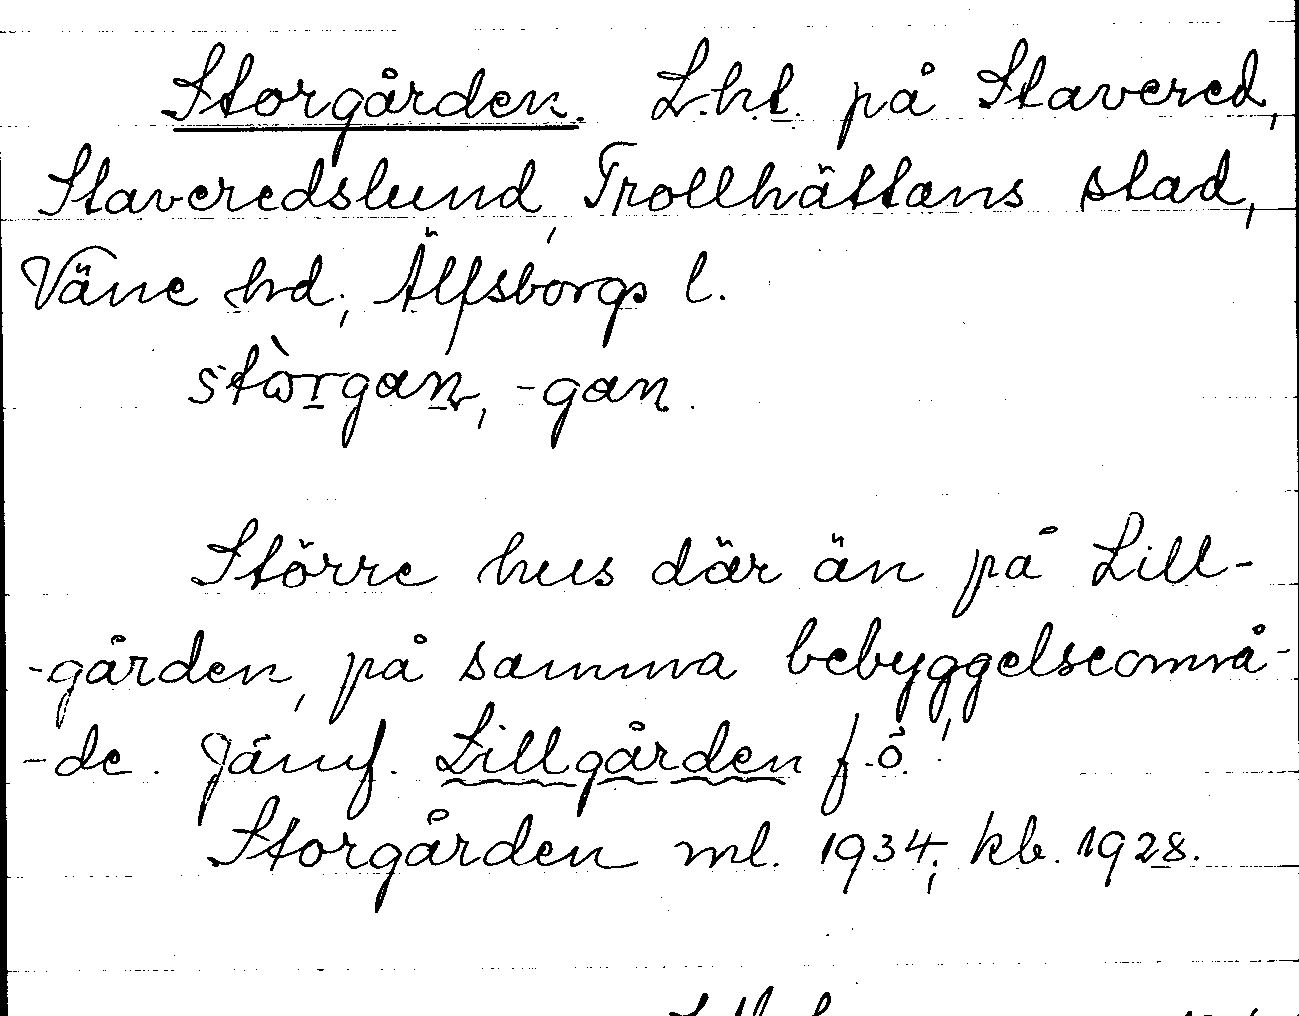 Storgården. L.h.t. på Stavered,
Staveredslund, Trollhättans stad,
Väne hd, Älfsborgs l.
stòrgan, -gan.
Större hus där än på Lill-
-gården, på samma bebyggelseområ-
-de. Jämf. Lillgården f.ö.
Storgården ml. 1934; kb. 1928.